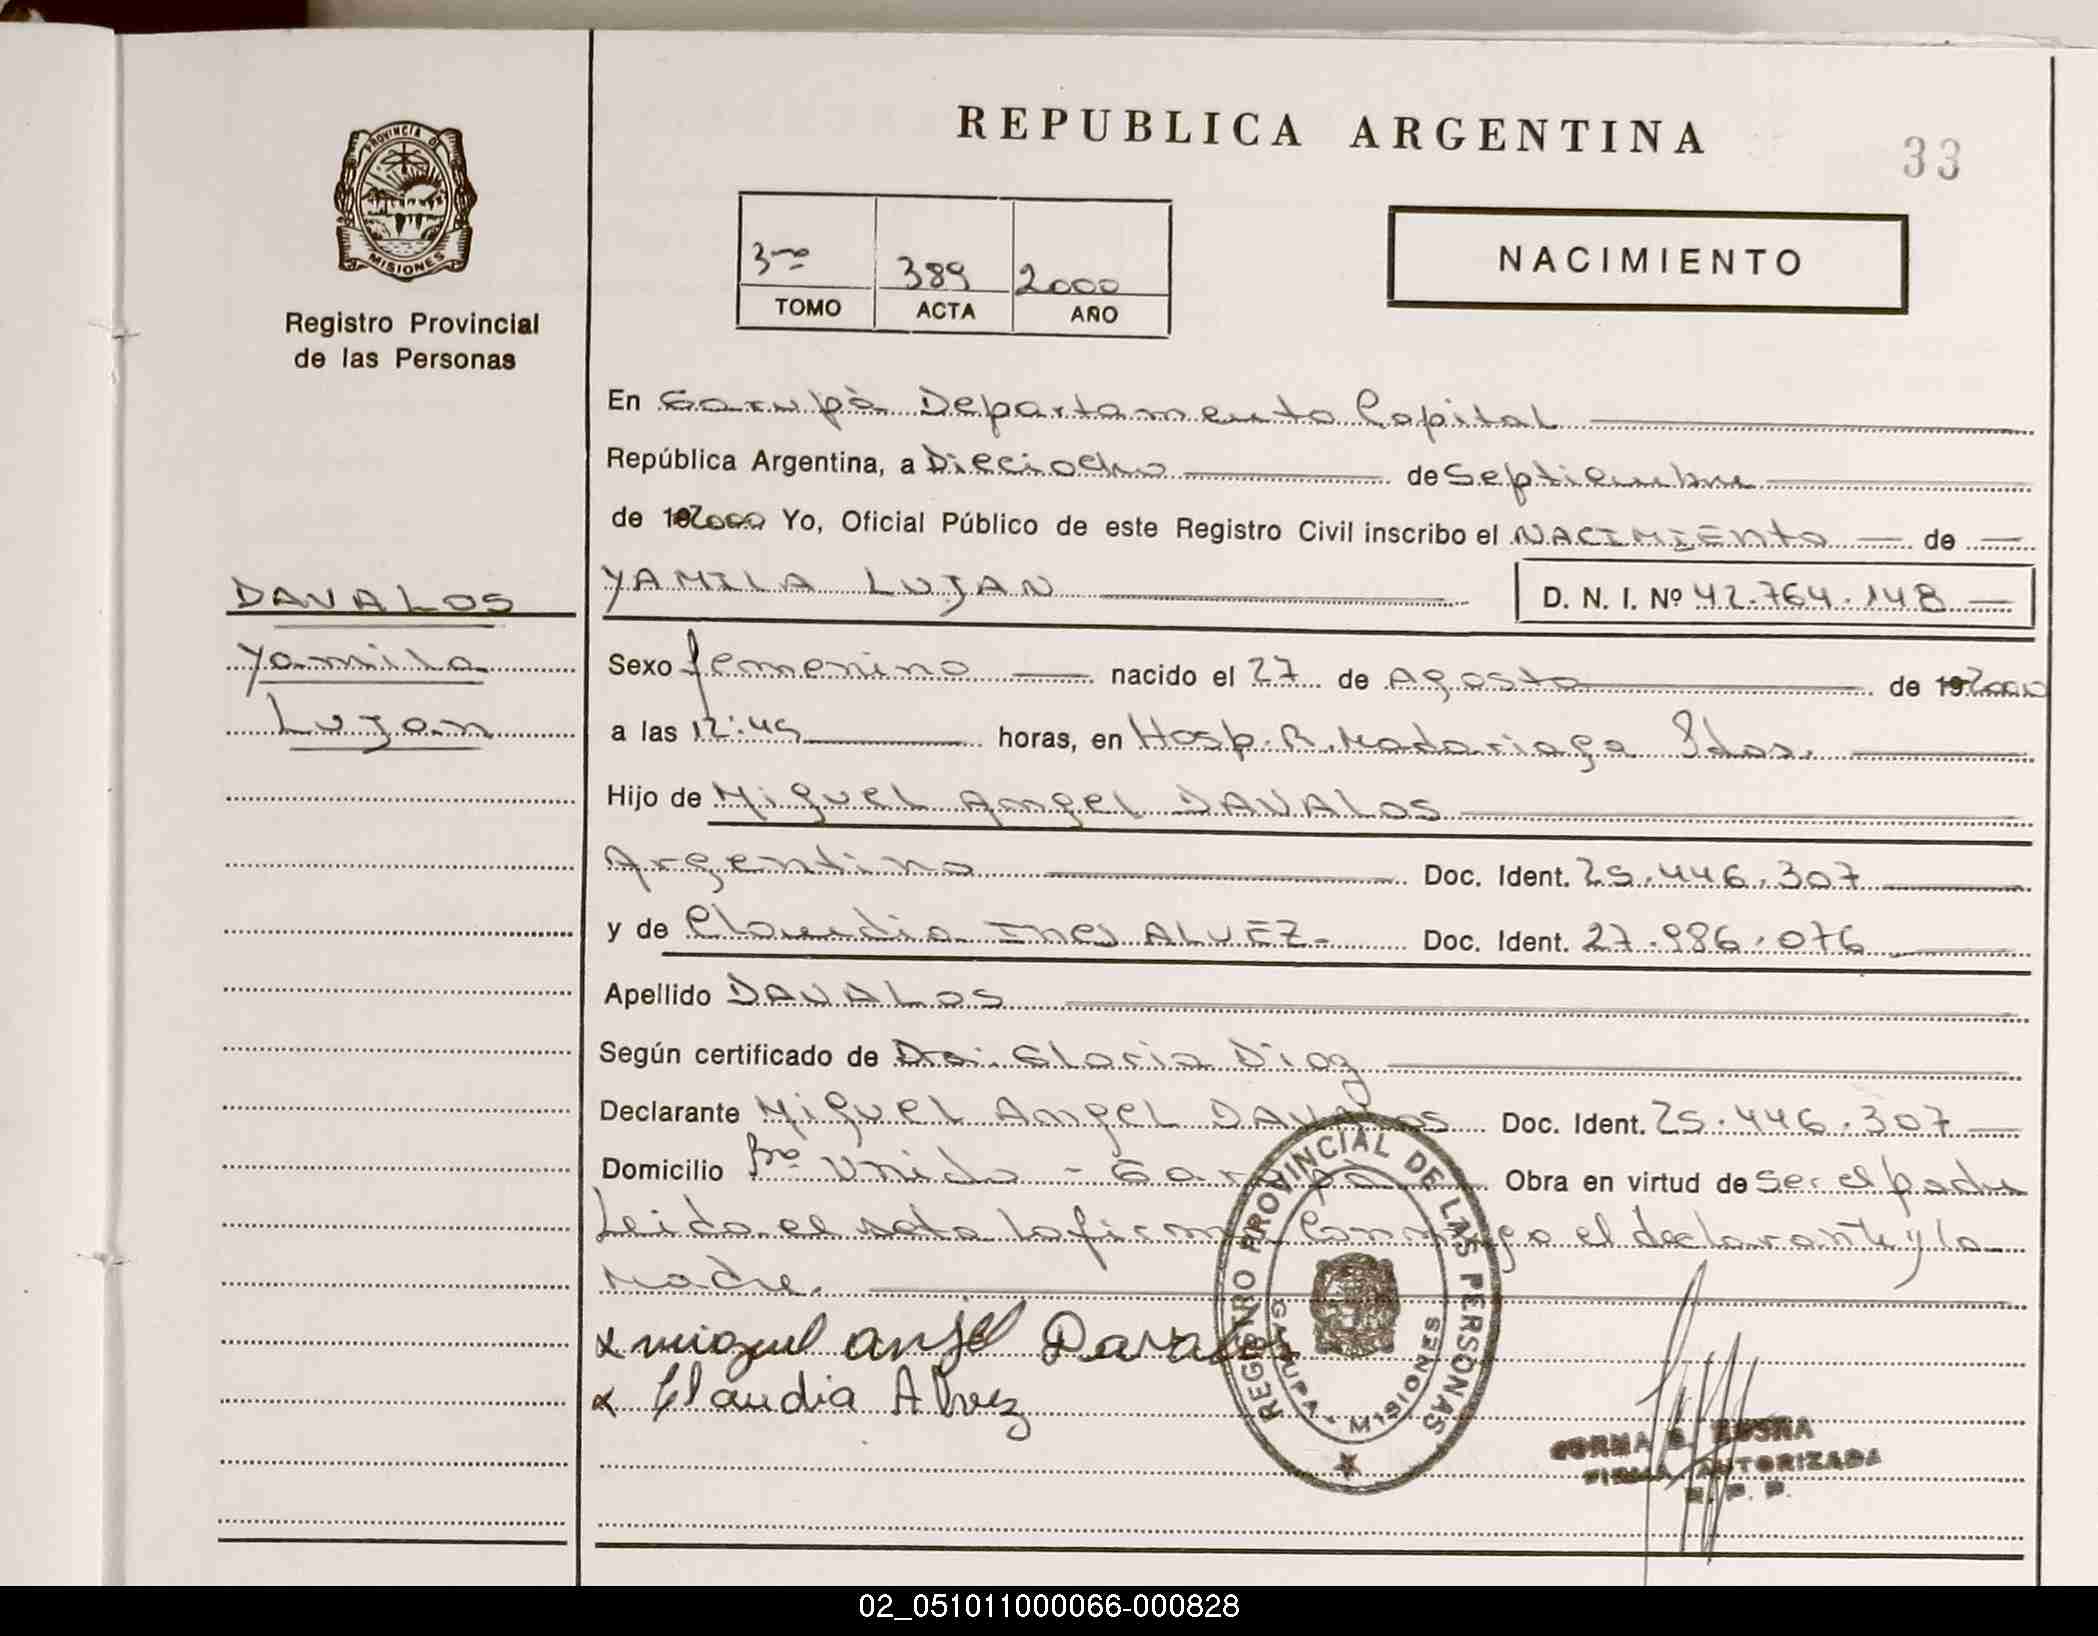 REPUBLICA ARGENTINA
33
PROVINCIA DE
MISIONES
Registro Provincial
de las Personas
3ro 389 2000
TOMO ACTA AÑO
NACIMIENTO
En Garupá Departamento Capital
República Argentina, a Dieciocho de Septiembre
de 192000 Yo, Oficial Público de este Registro Civil inscribo el NACIMIENTO de
DAVALOS
Yamila
Lujan
YAMILA LUJAN D. N. I. Nº 42.764.148
Sexo femenino nacido el 27 de Agosto de 192000
a las 12:45 horas, en Hosp. R. Madariaga Pdas.
Hijo de Miguel Angel DAVALOS
Argentino Doc. Ident. 25.446.307
y de Claudia Ines ALVEZ Doc. Ident. 27.986.076
Apellido DAVALOS
Según certificado de Dra. Gloria Diaz
Declarante Miguel Angel DAVALOS Doc. Ident. 25.446.307
Domicilio Bro Unido - Garupá Obra en virtud de Ser el padre
Leida el acta la firma Conmigo el declarante y la
Madre.
x miguel anjel Davalos
x Claudia Alvez
REGISTRO PROVINCIAL DE LAS PERSONAS
GARUPA - MISIONES
FIRMA AUTORIZADA
R. P. P.
02_051011000066-000828